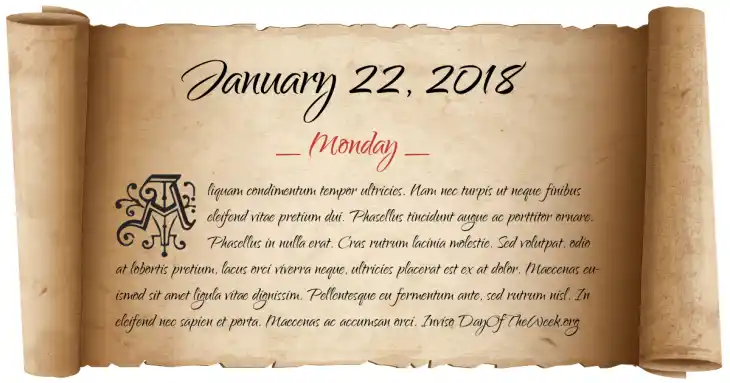 January 22, 2018
_ Monday _
Aliquam condimentum tempor ultricies. Nam nec turpis ut neque finibus
eleifend vitae pretium dui. Phasellus tincidunt augue ac porttitor ornare.
Phasellus in nulla erat. Cras rutrum lacinia molestie. Sed volutpat, odio
at lobortis pretium, lacus orci viverra neque, ultricies placerat est ex at dolor. Maecenas eu-
ismod sit amet ligula vitae dignissim. Pellentesque eu fermentum ante, sed rutrum nisl. In
eleifend nec sapien et porta. Maecenas ac accumsan orci. Inviso DayOfTheWeek.org